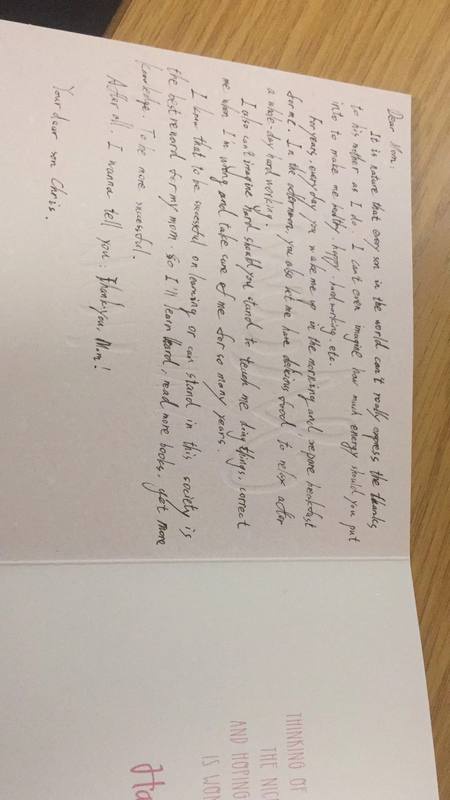 Dear Mom.
It is nature that every son in the world can't really express the thanks
to his mother as I do. I can't even imagine how much energy should you put
into to make me healthy. happy. hard working. etc.
For years, everyday you wake me up in the morning and prepare breakfast
for me. In the afternoon, you also let me have delicious food to relax after
a whole-day hard working.
I also can't imagine hard should you stand to teach me doing things, correct
me when I'm wrong and take care of me for so many years.
I know that to be successful on learning or can stand in this society is
the best reword for my mom. So I'll learn hard, read more books. get more
knowledge. To be more sucessful.
After all. I wanna tell you: Thank you, Mom!
Your dear son Chris.
THINKING OF
THE NIC
AND HOPING
IS WON
Ha